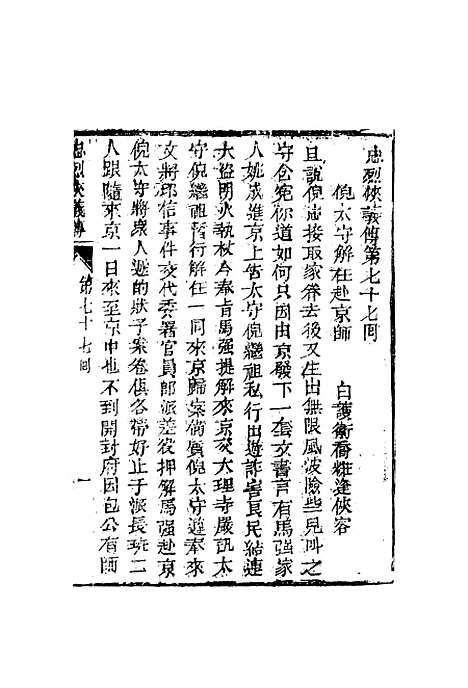 忠烈俠義傳第七十七回
倪太守解任赴京師　白護衛喬粧逢俠客
且說倪忠接取家眷去後又生出無限風波險些兒叫之
守含寃你道如何只因由京發下一套文書言有馬强家
人姚成進京上告太守倪繼祖私行出遊詐害良民結連
大盜明火執杖今奉旨馬强提解來京交大理寺嚴訊太
守倪繼祖暫行解任一同來京歸案備質倪太守遵奉來
文將印信事件交代委署官員卽派差役押解馬强赴京
倪太守將衆人遞的狀子案卷俱各帶好止于派長班二
人跟隨來京一日來至京中也不到開封府因包公有師
忠烈俠義傳
第七十七回
一